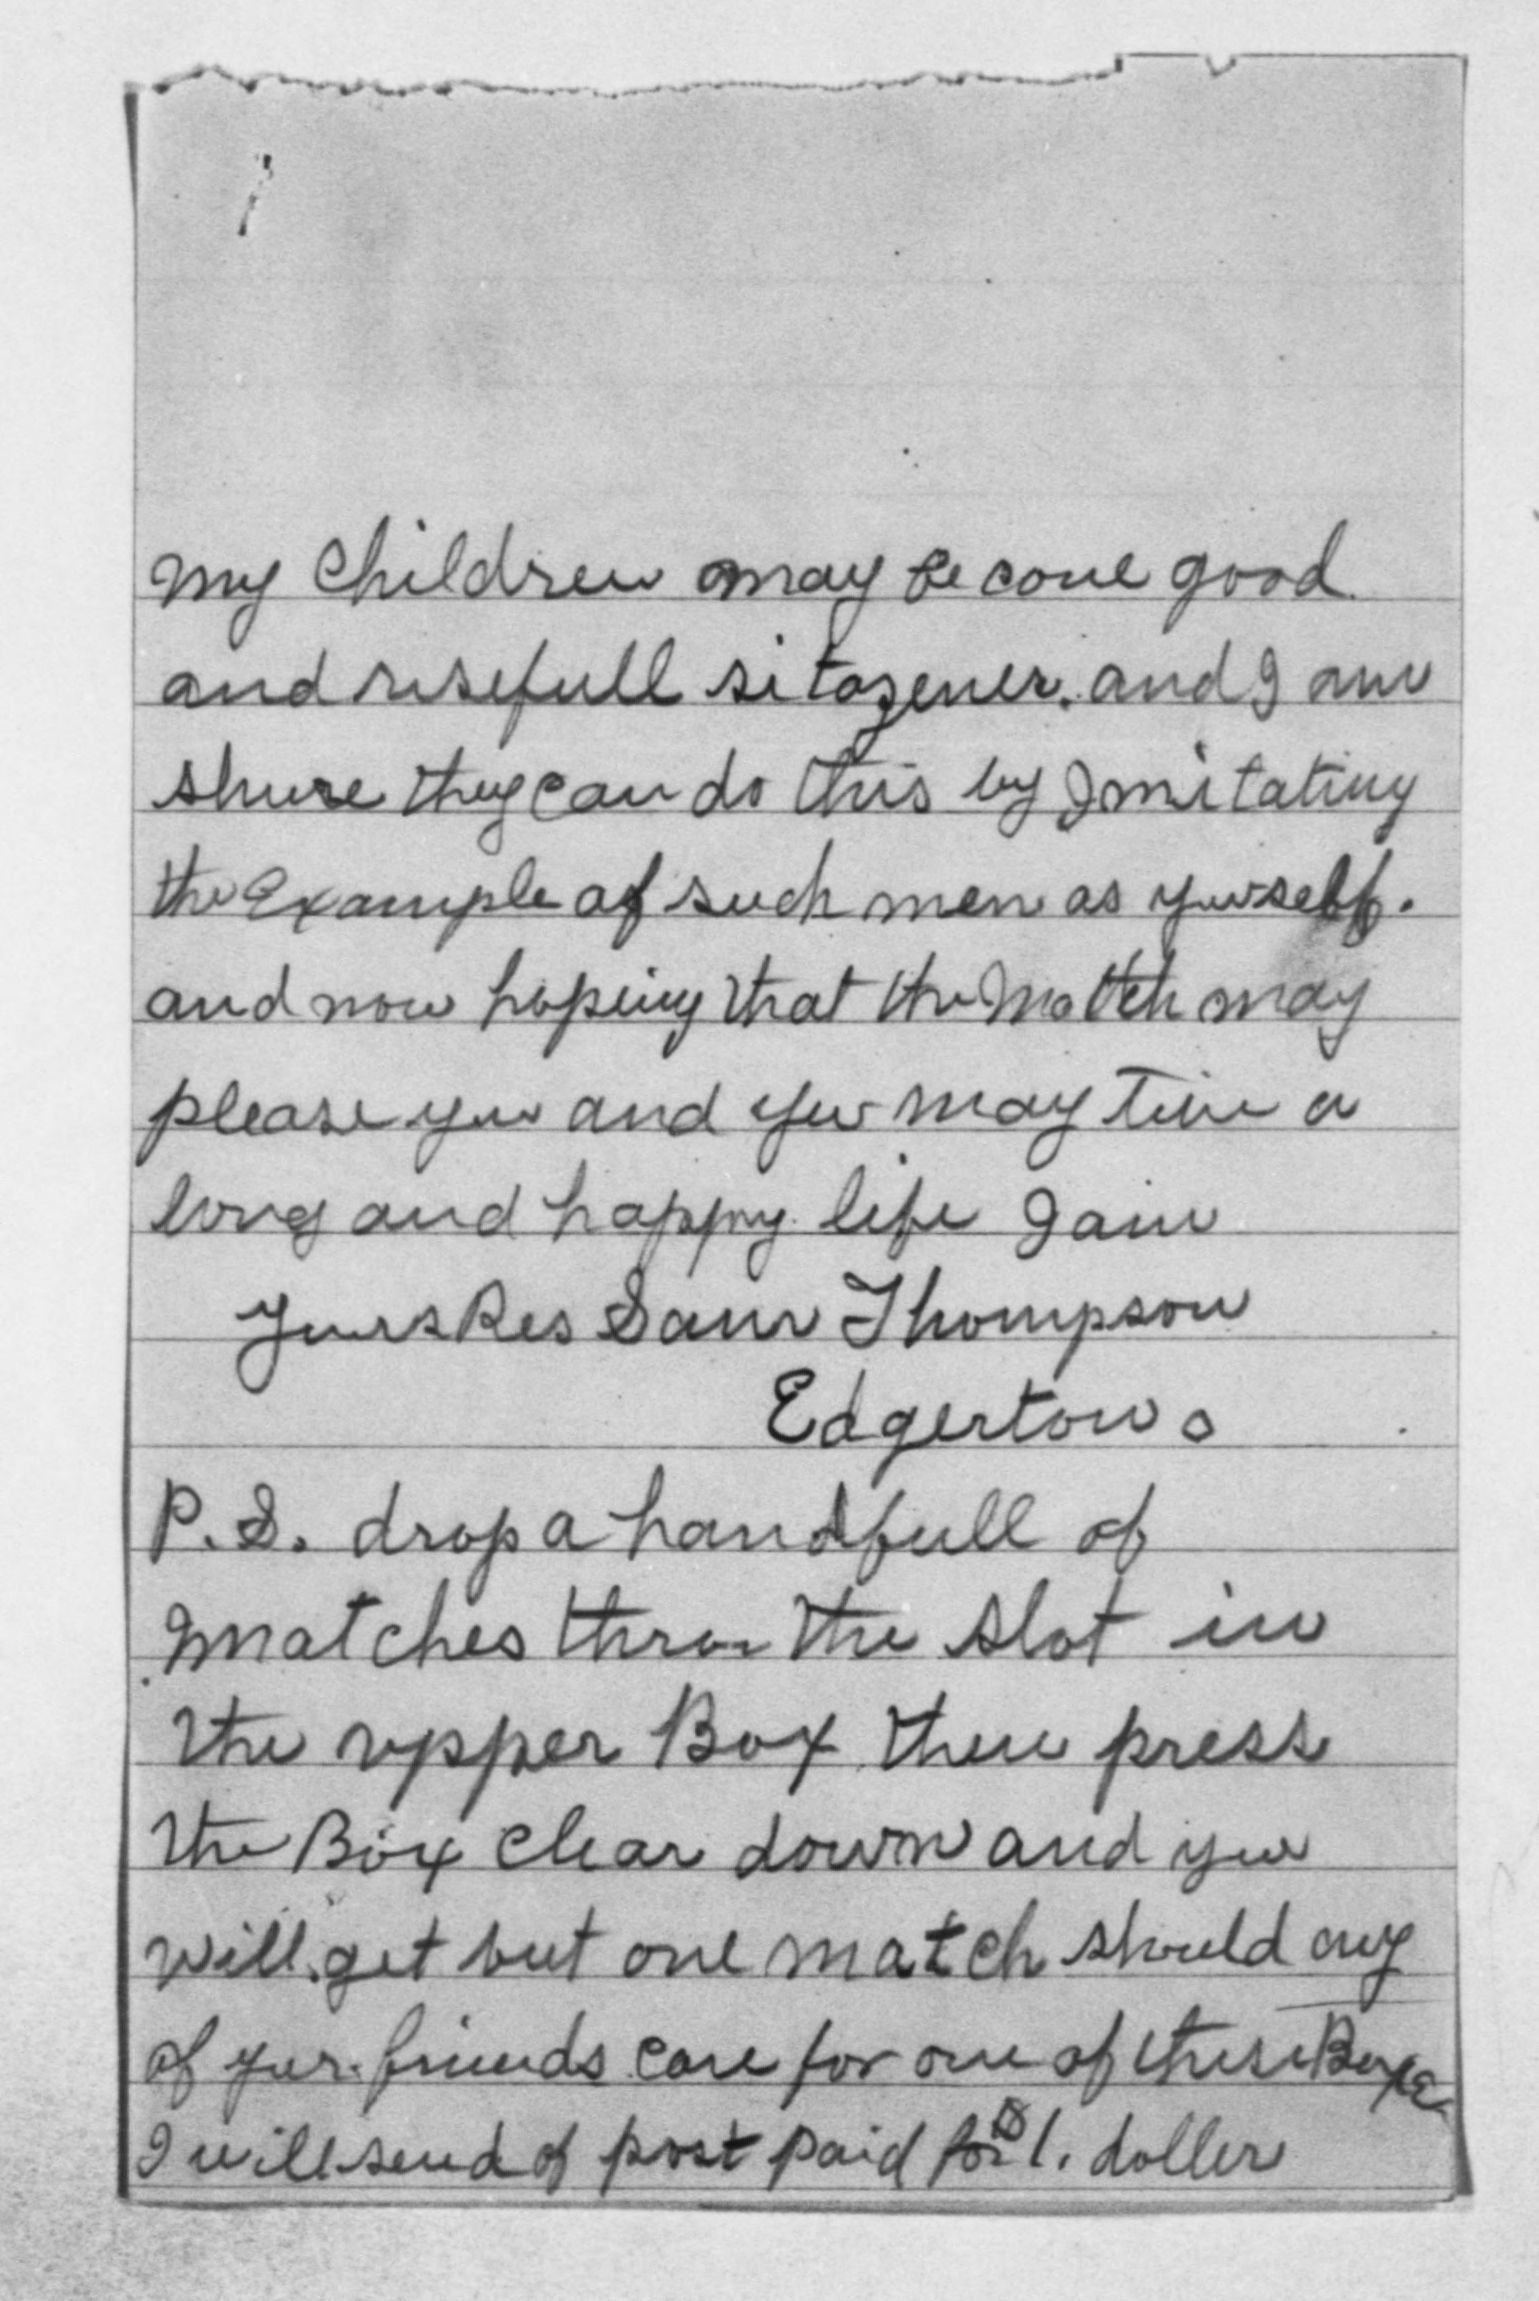 my Children may be come good
and usefull sitazener. and I am
shure they can do this by Imitating
the Example of such men as yurself.
and now hopeing that the Match may
please yu and yu may live a
long and happy life I am
Yurs Res Sam Thompson
Edgerton o
P.S. drop a handfull of
matches throu the slot in
the upper Box then press
the Box clear down and yu
will get but one match should any
of yur friends care for one of these Boxes
I will send of post paid for 1. doller